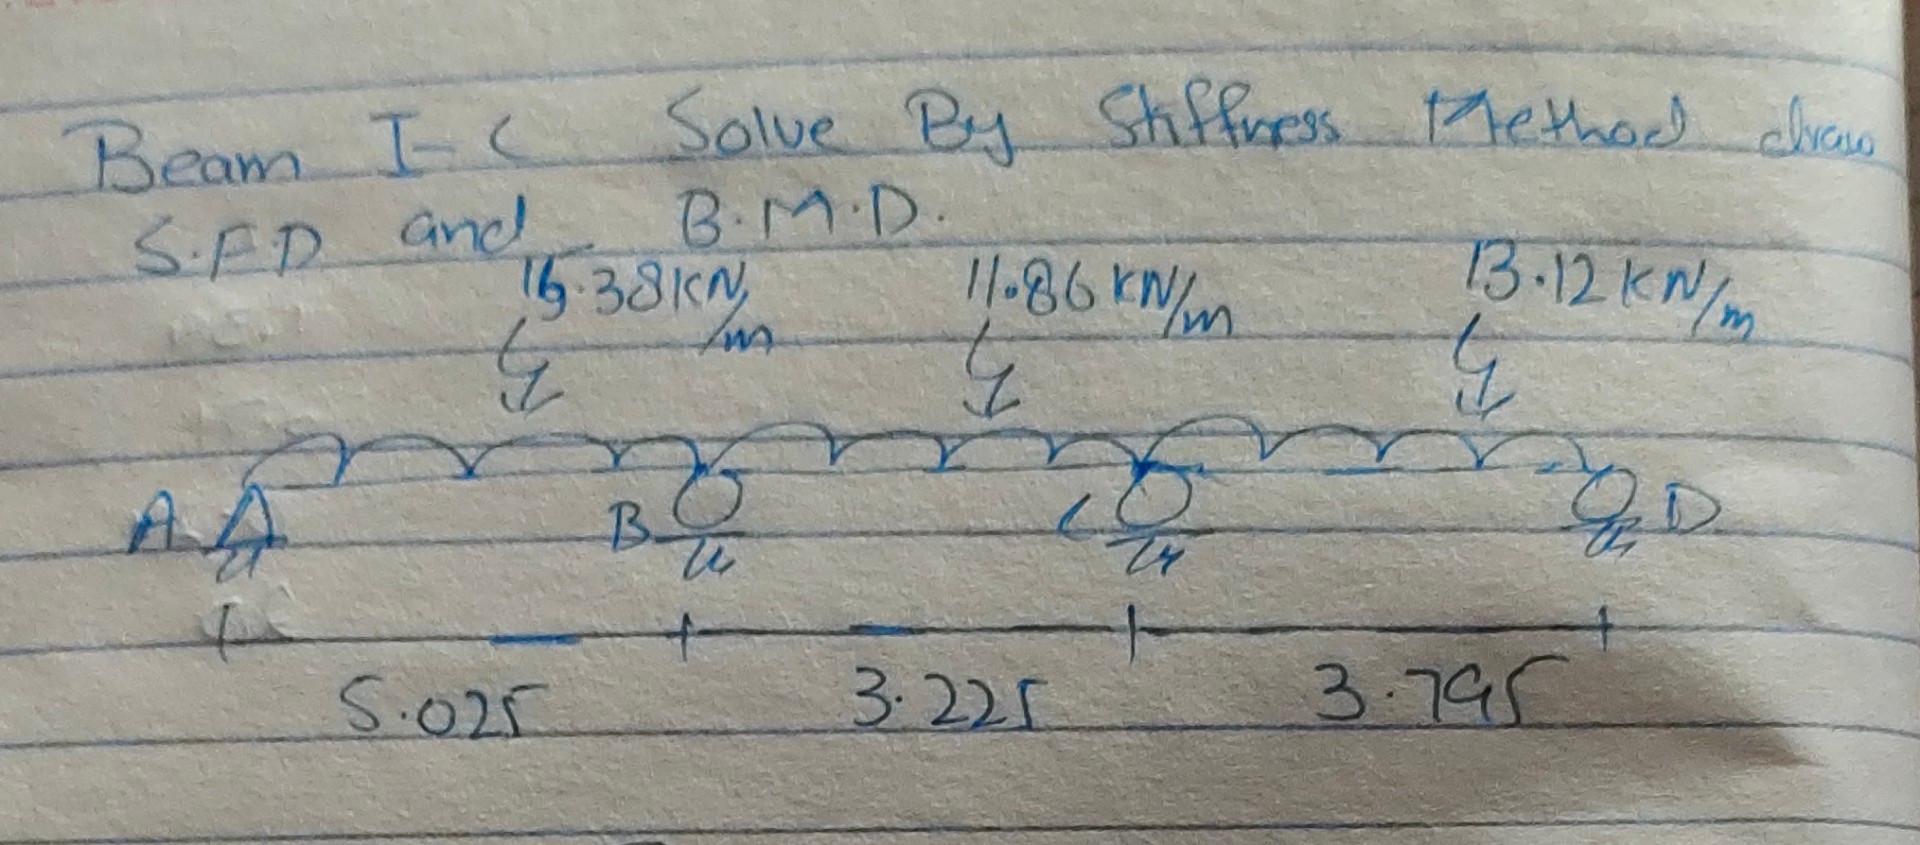 Beam I-C Solve By Stiffness Method draw
S.F.D and B.M.D.
15.38 KN/m 11.86 KN/m 13.12 KN/m
A B C D
5.025 3.225 3.795